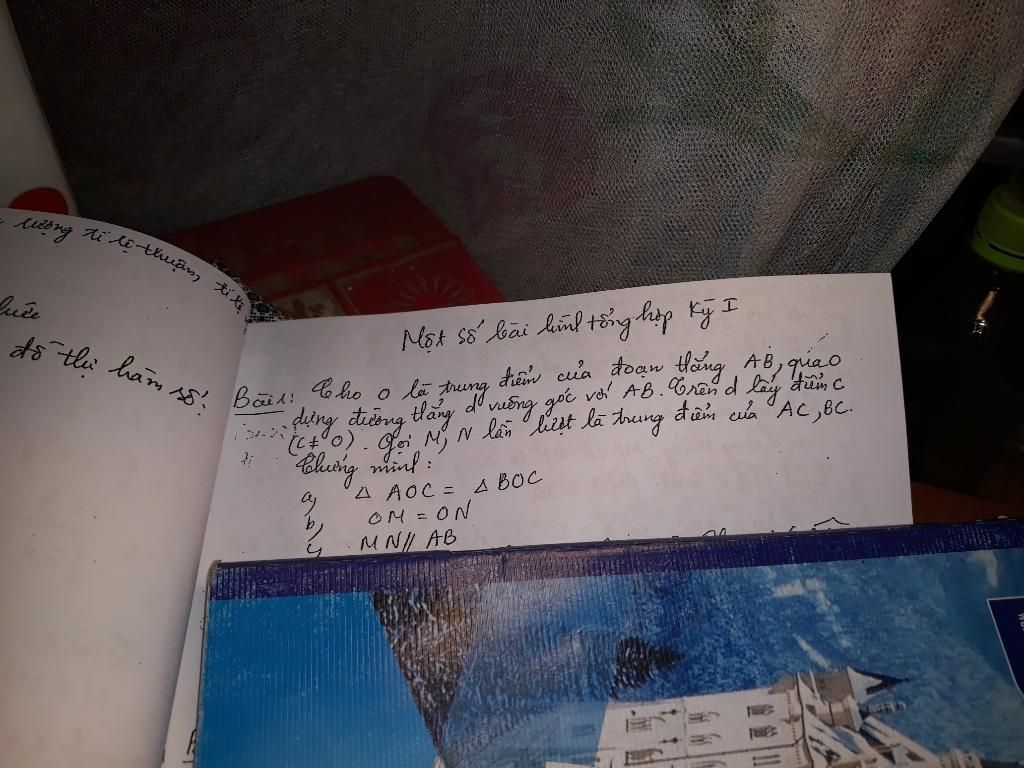 lượng tỉ lệ thuận, tỉ lệ
đồ thị hàm số:
Một số bài hình tổng hợp Kỳ I
Bài 1: Cho O là trung điểm của đoạn thẳng AB, qua O
dựng đường thẳng d vuông góc với AB. Trên d lấy điểm C
(C ≠ O). Gọi M, N lần lượt là trung điểm của AC, BC.
Chứng minh:
a, △ AOC = △ BOC
b, OM = ON
c, MN // AB